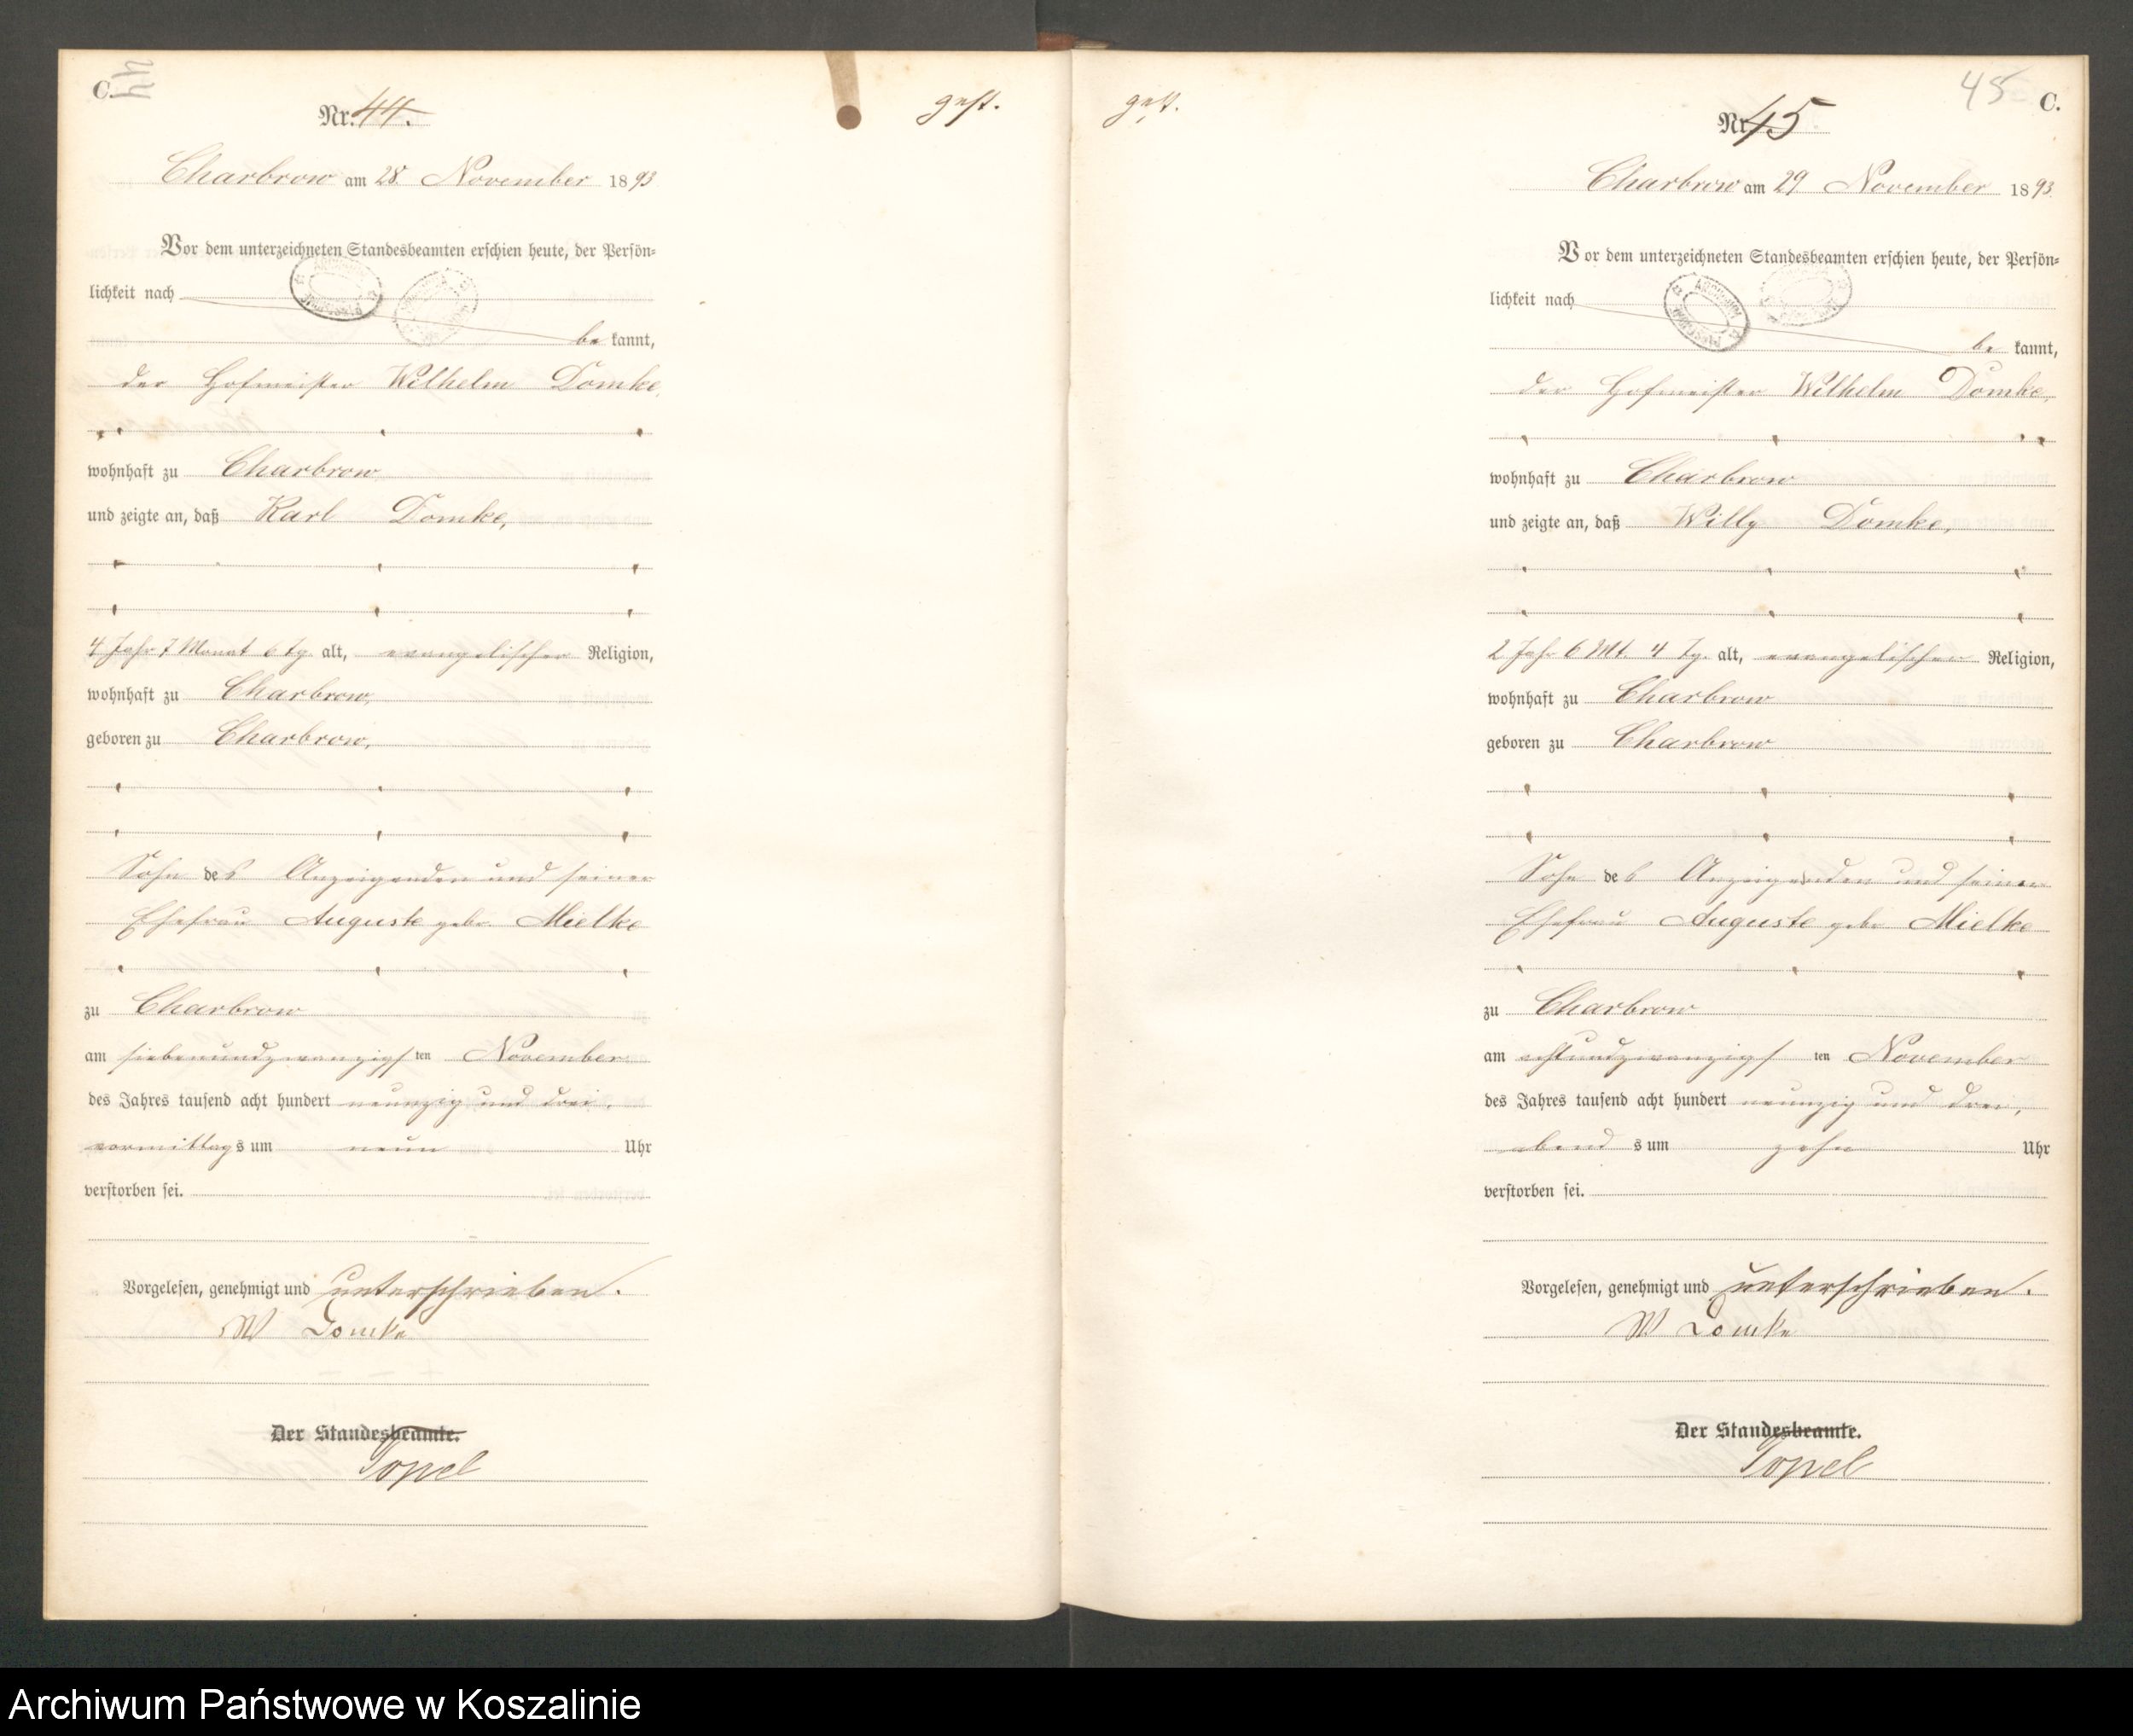 C.
44
Nr. 44.
gest.
Charbrow am 28. November 1893
Vor dem unterzeichneten Standesbeamten erschien heute, der Persön=
lichkeit nach
be kannt,
der Hofmeister Wilhelm Domke,
wohnhaft zu Charbrow
und zeigte an, daß Karl Domke,
4 Jahr 7 Monat 6 Tg. alt, evangelischer Religion,
wohnhaft zu Charbrow,
geboren zu Charbrow,
Sohn des Anzeigenden und seiner
Ehefrau Auguste geb. Mielke
zu Charbrow
am siebenundzwanzigsten November
des Jahres tausend acht hundert neunzig und drei,
vormittags um neun Uhr
verstorben sei.
Vorgelesen, genehmigt und unterschrieben.
W Domke
Der Standesbeamte.
Topel
gest.
45
C.
Nr. 45
Charbrow am 29 November 1893.
Vor dem unterzeichneten Standesbeamten erschien heute, der Persön=
lichkeit nach
be kannt,
der Hofmeister Wilhelm Domke,
wohnhaft zu Charbrow
und zeigte an, daß Willy Domke,
2 Jahr 6 Mt. 4 Tg. alt, evangelischer Religion,
wohnhaft zu Charbrow
geboren zu Charbrow
Sohn des Anzeigenden und seiner
Ehefrau Auguste geb. Mielke
zu Charbrow
am achtundzwanzigsten November
des Jahres tausend acht hundert neunzig und drei,
abends um zehn Uhr
verstorben sei.
Vorgelesen, genehmigt und unterschrieben.
W Domke
Der Standesbeamte.
Topel
Archiwum Państwowe w Koszalinie